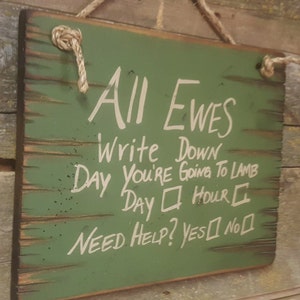 All Ewes
Write Down
Day You're Going To Lamb
Day ☐ Hour ☐
Need Help? Yes ☐ No ☐